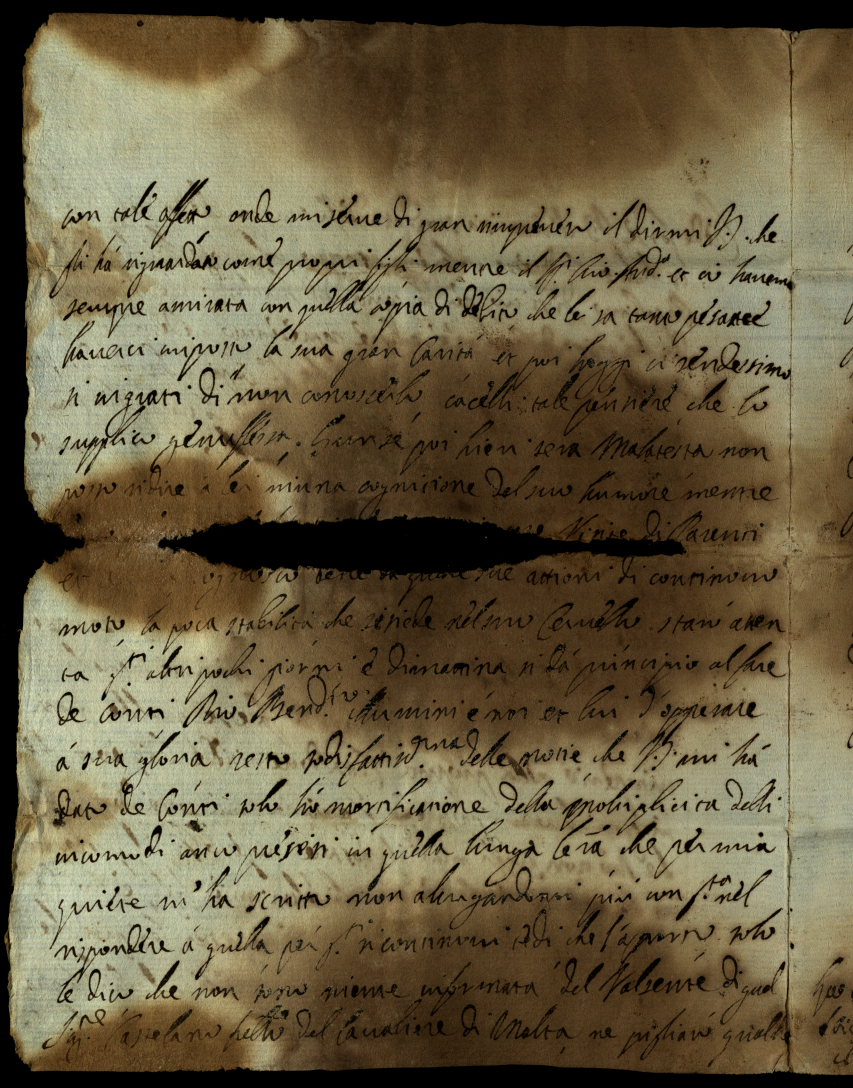 con tale affetto onde mi serve di gran rimprovero il dirmi P. che
li hà riguardati come proprii figli mentre il Sig. Iddio et ci haveva
sempre amirata con quella copia di che lei sa tanto pesante
haverci imposto la sua gran Carità et poi hoggi ci rendessimo
si ingrati di non conoscerlo cacelli tale pensiere che lo
supplico genuflessa. poi hieri sera Malatesta non
posso ridire à lei niuna cognitione del suo humore mentre
di Parenti
et bene da quelle sue attioni di continuovo
moto la poca stabilità che risiede nel suo Cervello starò aten
ta altri pochi giorni è dimattina si dà principio al fare
de conti Dio Bened. illumini è noi et lui d'operare
à sua gloria resto sodisfattissima delle notie che P. mi hà
dato de Conti solo hò mortificatione della moltiplicita delli
incomodi anco presisi in quella lunga che per mia
quiete m'ha scritto non alungandomi più con nel
rispondere à quella per i continovi tedi che l'aporto solo
le dico che non sono niente informata del Valsente di quel
Castelano fatto del Cavaliere di Malta, ne pigliarò qualche